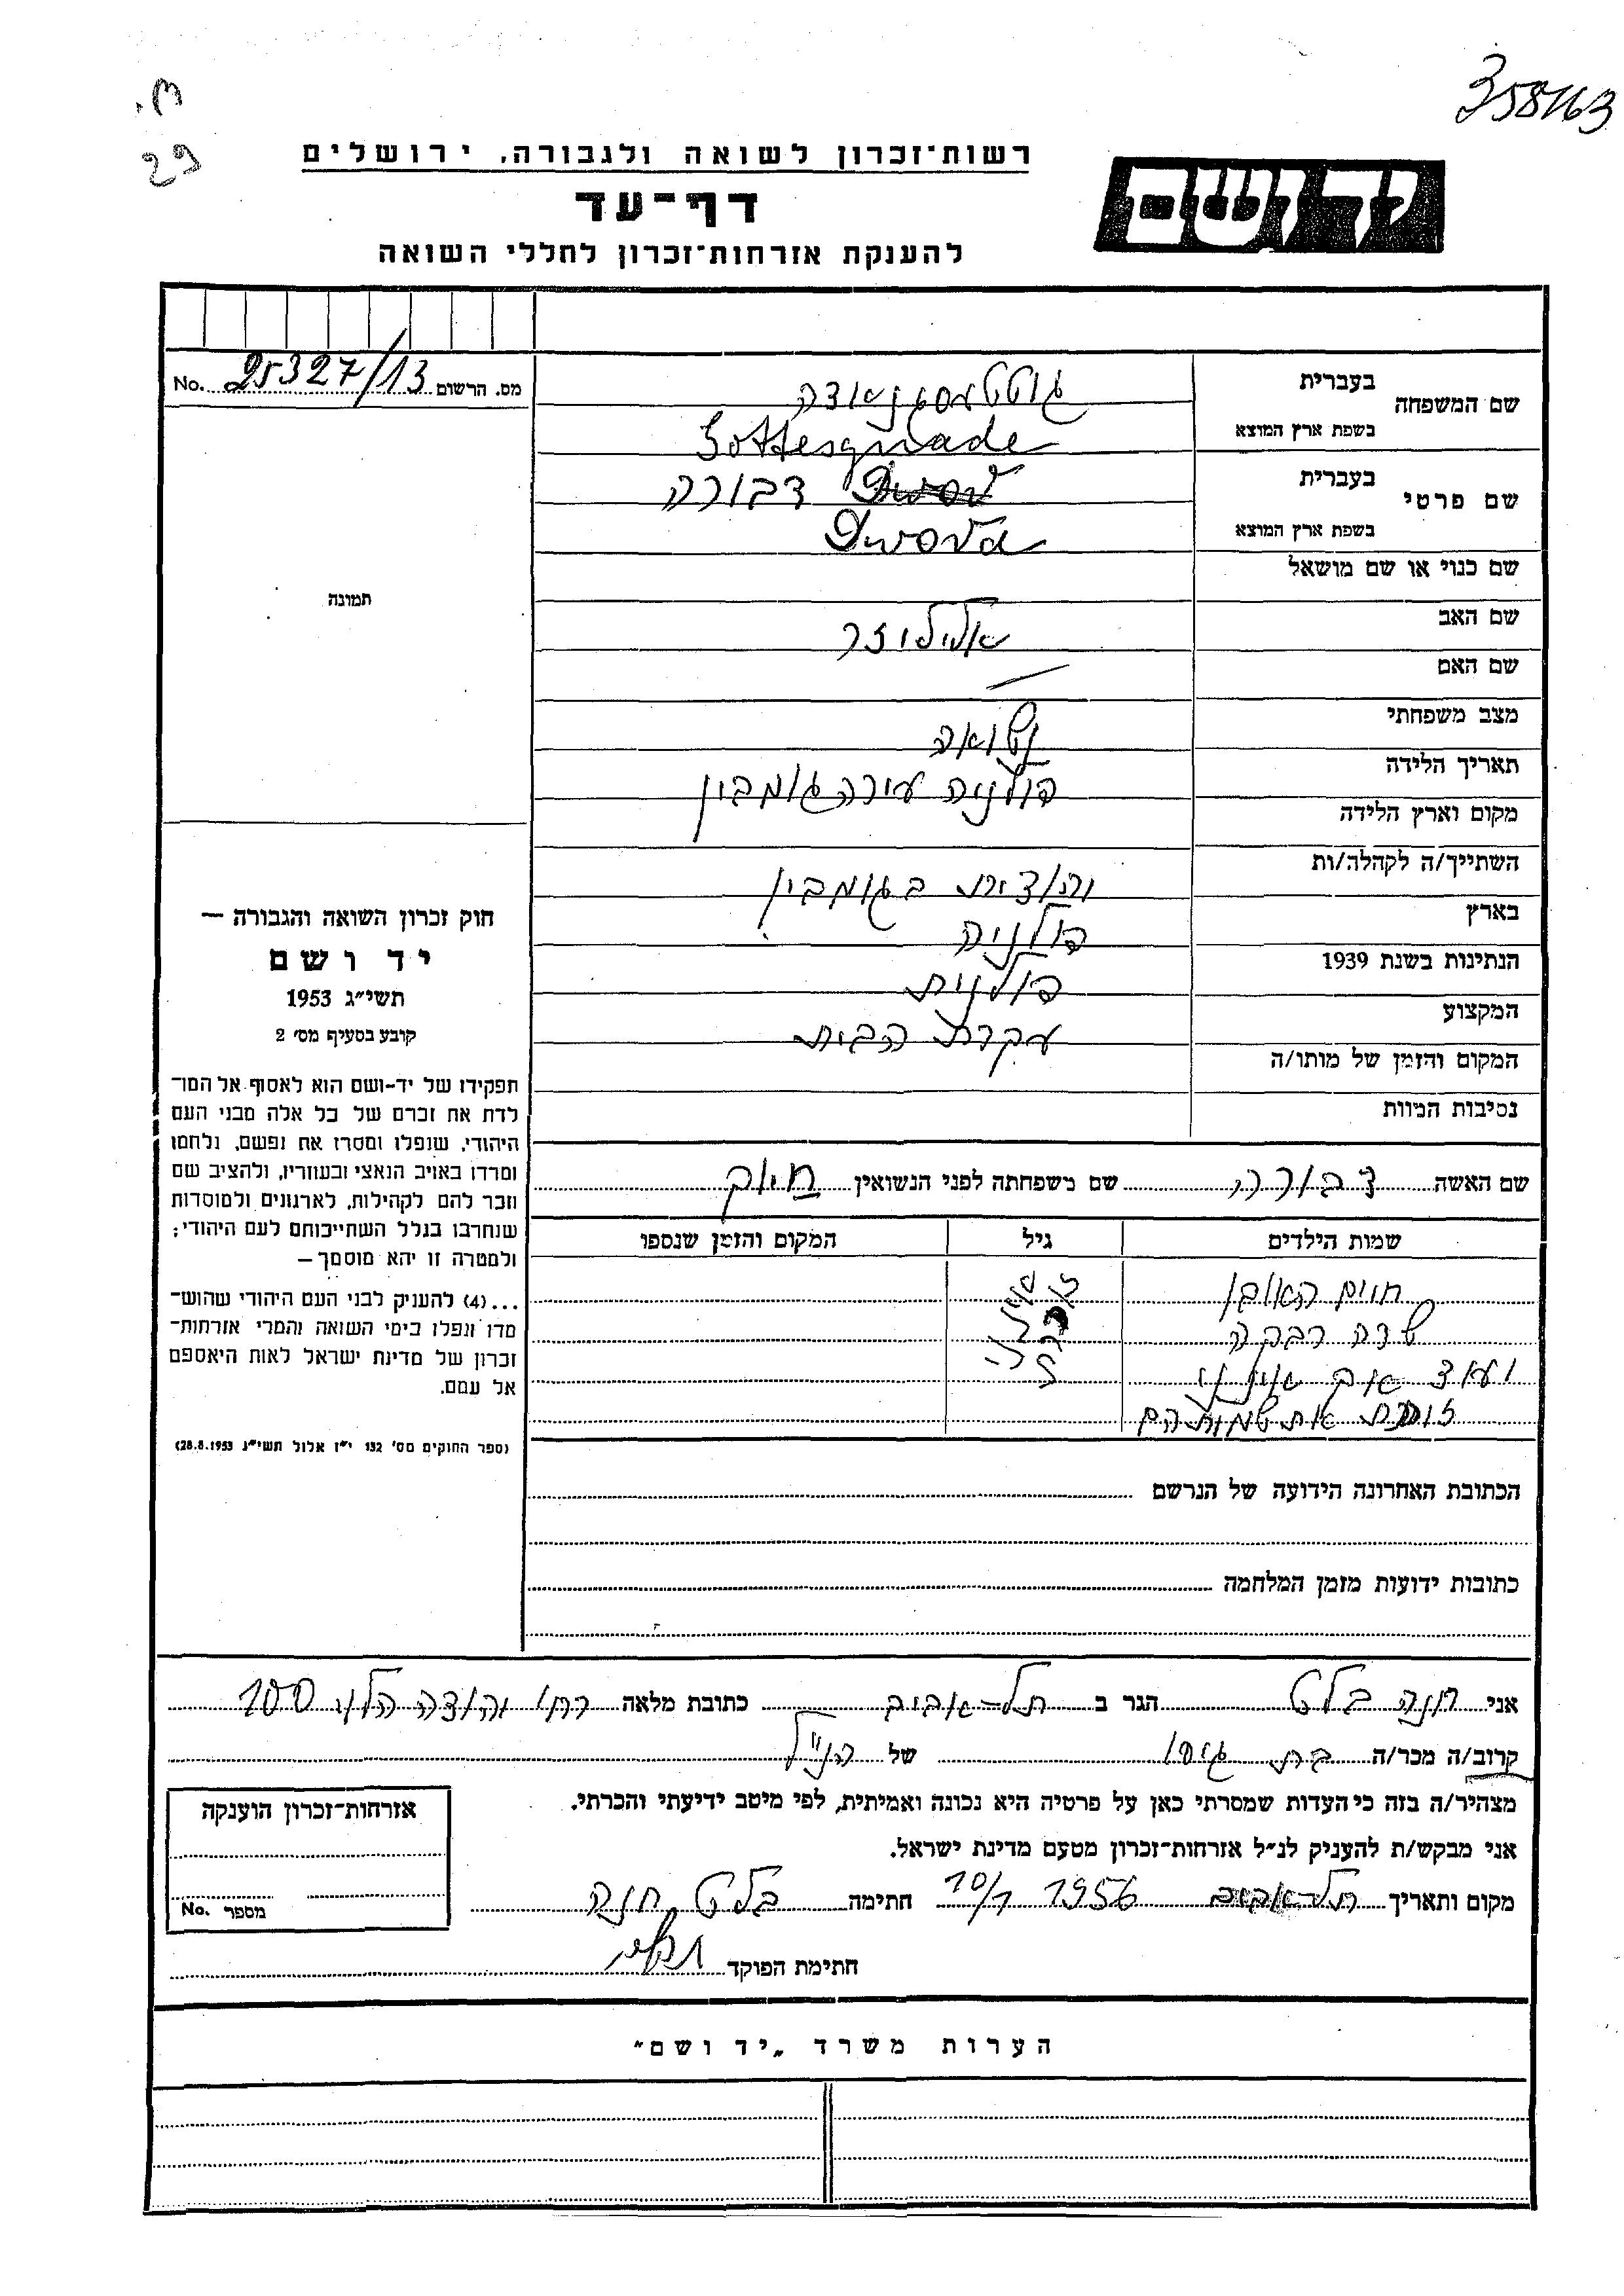 358163
רשות־זכרון לשואה ולגבורה, ירושלים
ידושם
דף־עד
להענקת אזרחות־זכרון לחללי השואה
מס. הרשום 25327/13 No.
שם המשפחה
בעברית
בשפת ארץ המוצא Gottesgnade
שם פרטי
בעברית דבורה
בשפת ארץ המוצא Dwora
שם כנוי או שם מושאל
שם האב
שם האם —
מצב משפחתי נשואה
תאריך הלידה פולניה עירה גומבין
מקום וארץ הלידה
השתייך/ה לקהלה/ות יהודית בגומבין
בארץ פולניה
הנתינות בשנת 1939 פולנית
המקצוע עקרת הבית
המקום והזמן של מותו/ה
נסיבות המוות
תמונה
חוק זכרון השואה והגבורה —
יד ושם
תשי״ג 1953
קובע בסעיף מס׳ 2
תפקידו של יד-ושם הוא לאסוף אל המו־
לדת את זכרם של כל אלה מבני העם
היהודי, שנפלו ומסרו את נפשם, נלחמו
ומרדו באויב הנאצי ובעוזריו, ולהציב שם
וזכר להם לקהילות, לארגונים ולמוסדות
שנחרבו בגלל השתייכותם לעם היהודי;
ולמטרה זו יהא מוסמך —
...(4) להעניק לבני העם היהודי שהוש־
מדו ונפלו בימי השואה והמרי אזרחות־
זכרון של מדינת ישראל לאות היאספם
אל עמם.
(ספר החוקים מס׳ 132 י״ז אלול תשי״ג 28.8.1953)
שם האשה דבורה שם משפחתה לפני הנשואין
שמות הילדים גיל המקום והזמן שנספו
חיים ראובן
שרה רבקה
ועוד אך אינני
זוכרת את שמותיהם
הכתובת האחרונה הידועה של הנרשם
כתובות ידועות מזמן המלחמה
אני חנה בלט הגר ב תל-אביב כתובת מלאה רח׳ יהודה הלוי 100
קרוב/ה מכר/ה בת גיסו של הנ״ל
מצהיר/ה בזה כי העדות שמסרתי כאן על פרטיה היא נכונה ואמיתית, לפי מיטב ידיעתי והכרתי.
אני מבקש/ת להעניק לנ״ל אזרחות־זכרון מטעם מדינת ישראל.
מקום ותאריך תל-אביב 10/1 1956 חתימה בלט חנה
חתימת הפוקד
אזרחות־זכרון הוענקה
מספר No.
הערות משרד „יד ושם״